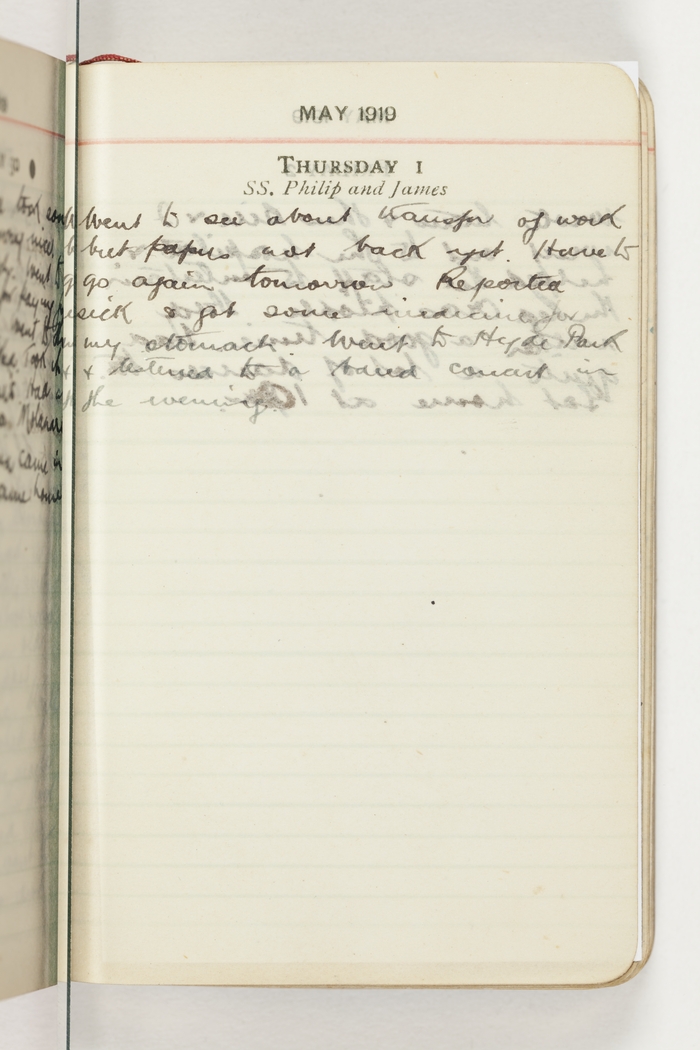 MAY 1919
THURSDAY 1
SS. Philip and James
Went to see about transfer of work
but papers not back yet. Have to
go again tomorrow Reported
sick & got some medicine for
my stomach Went to Hyde Park
& listened to a band concert in
the evening.